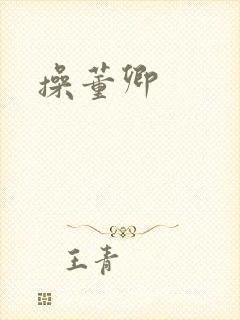 操董卿
王青